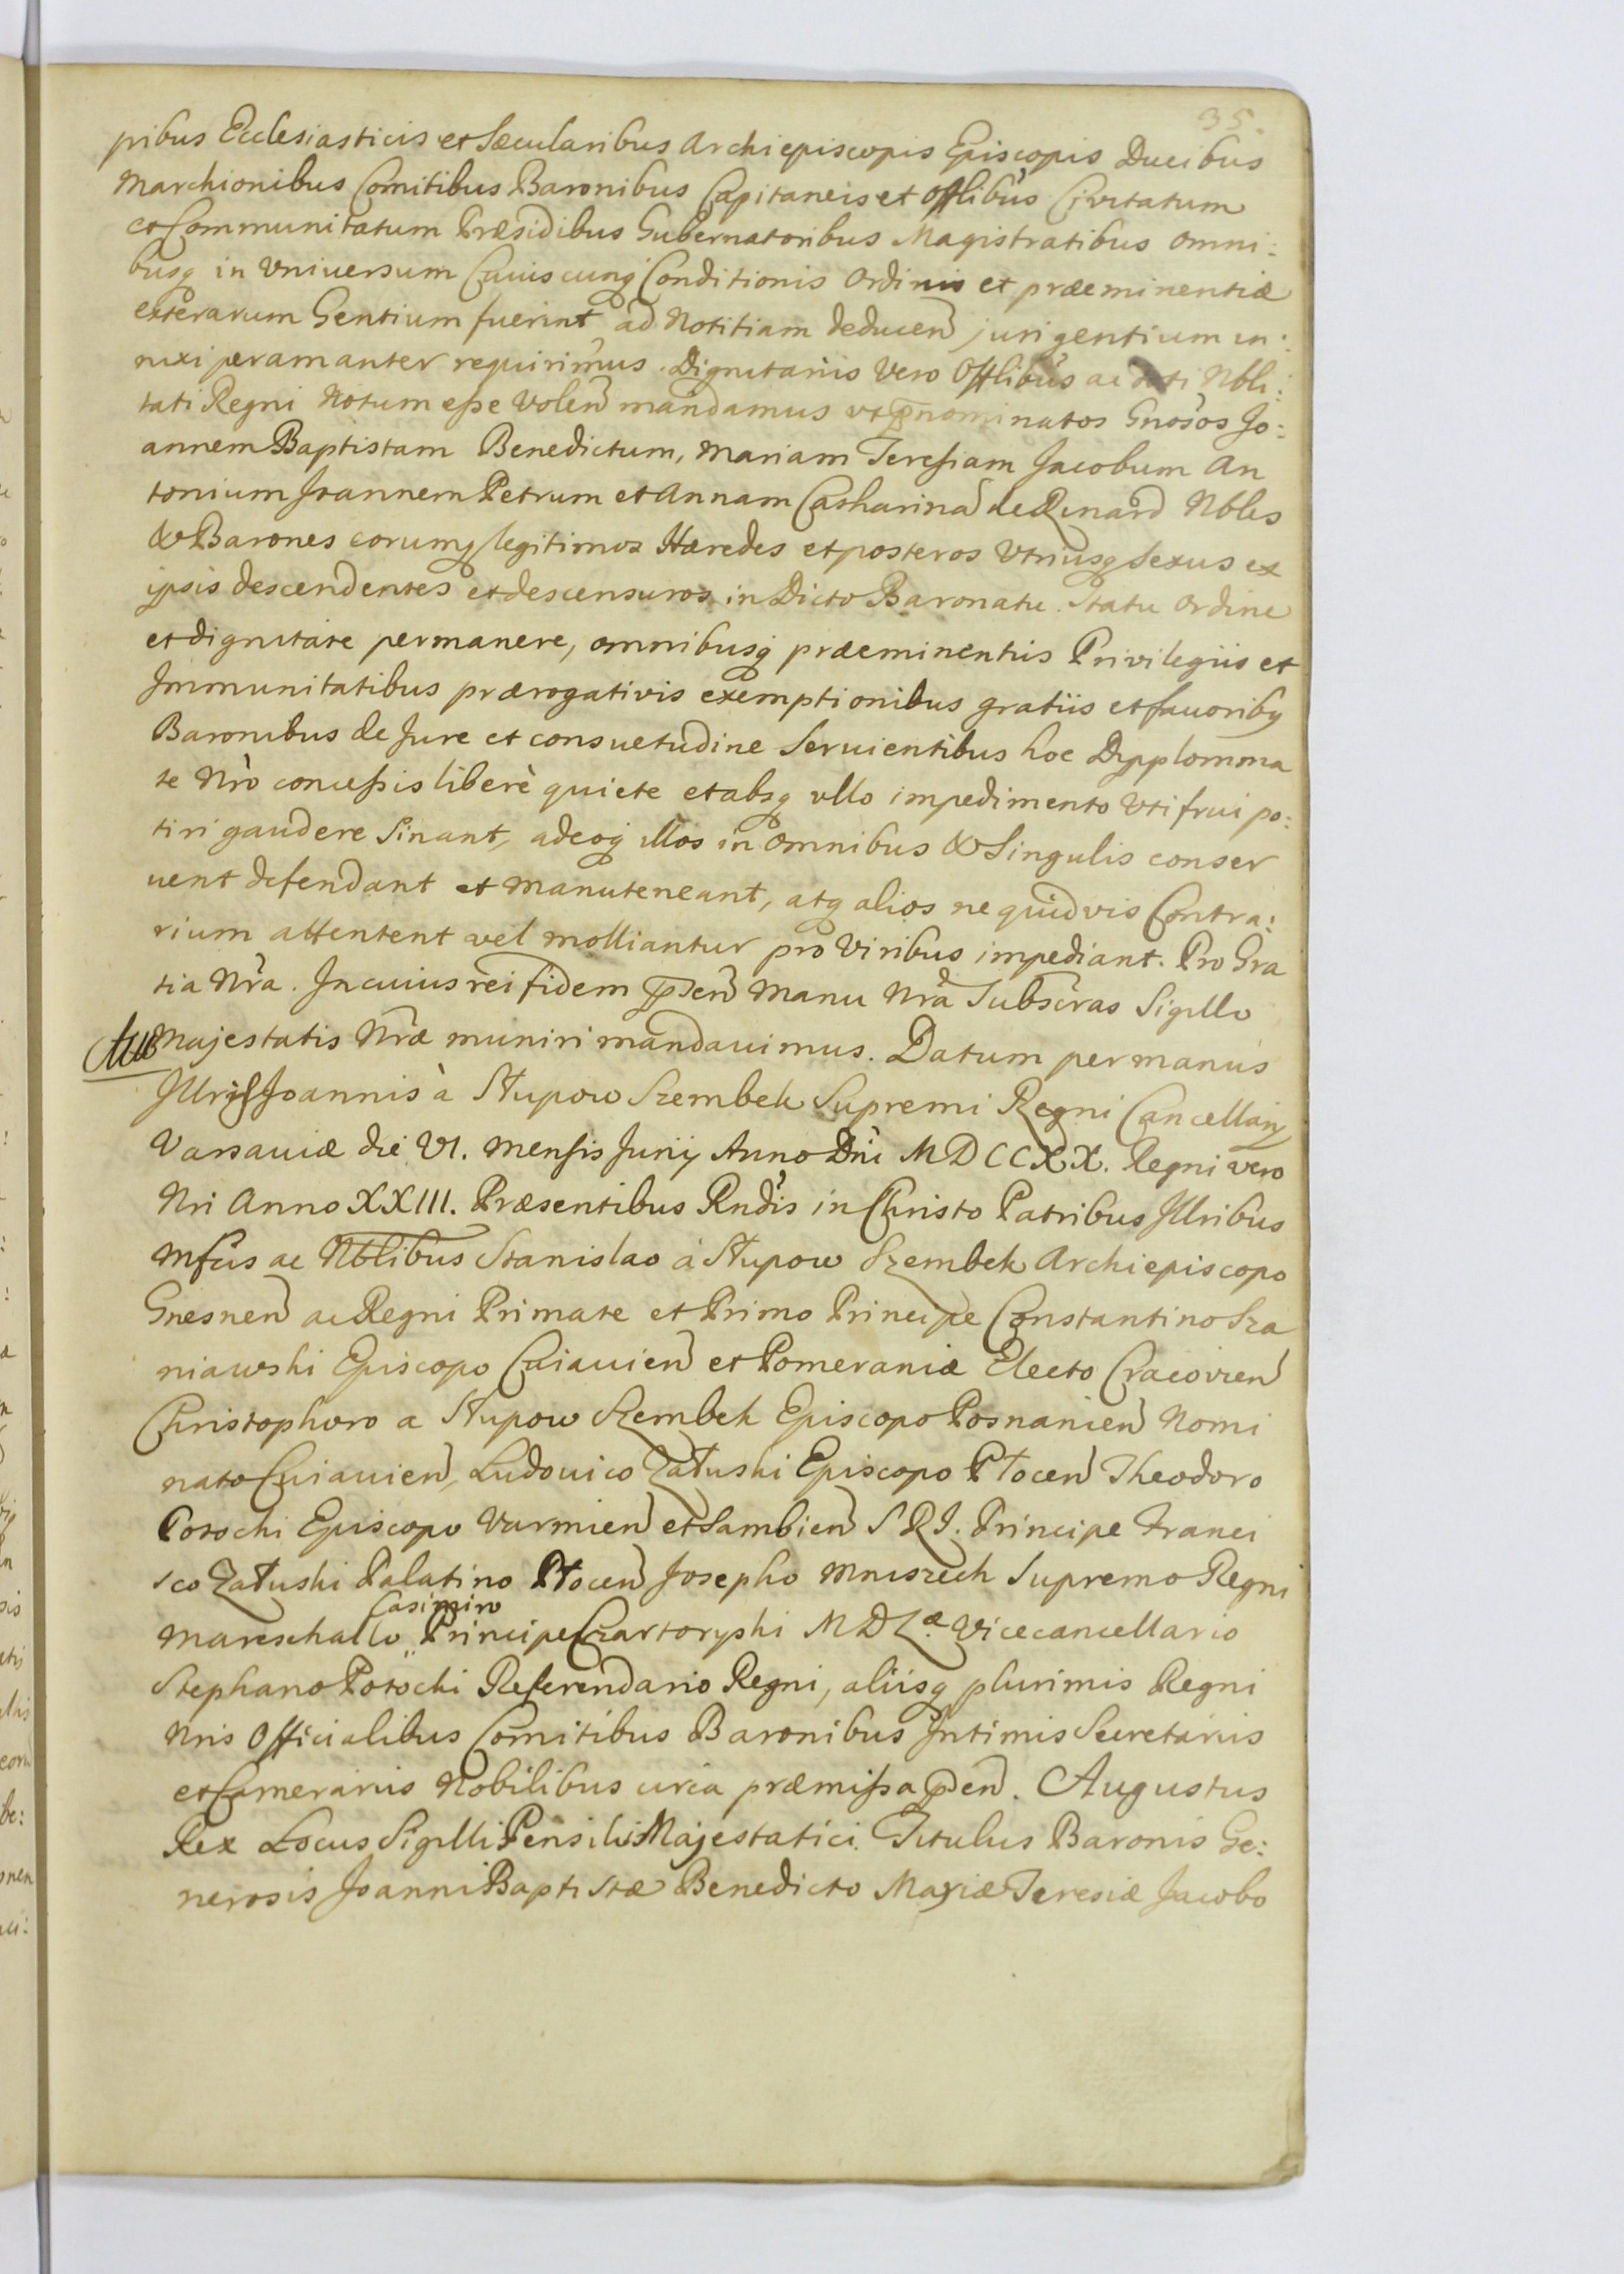 35.
pribus Ecclesiasticis et Sæcularibus Archiepiscopis Episcopis Ducibus
Marchionibus Comitibus Baronibus Capitaneis et Offlibus Civitatum
et Communitatum Præsidibus Gubernatoribus Magistratibus omni:
busq in Vniuersum Cuiuscunq Conditionis Ordinis et præeminentiæ
exterarum Gentium fuerint, ad Notitiam deducen jurigentium in:
nixi peramanter requirimus. Dignitariis Vero Offlibus ac toti Nbli:
tati Regni Notum esse Volen mandamus vt pnominatos Gnosos Jo:
annem Baptistam Benedictum, Mariam Teresiam Jacobum An
tonium Joannem Petrum et Annam Catharina de Renard Nbles
& Barones eorumq legitimos Hæredes et posteros Vtriusq Sexus ex
ipsis descendentes et descensuros in Dicto Baronatu Statu Ordine
et dignitate permanere, omnibusq præeminentiis Privilegiis et
Immunitatibus prærogativis exemptionibus gratiis et fauoribq
Baronibus de Jure et consuetudine Seruientibus hoc Dypplomma
te Nro concessis liberè quiete et absq vllo impedimento Vti frui po:
tiri gaudere Sinant, adeoq illos in omnibus & Singulis conser
uent defendant et manuteneant, atq alios ne quidvis Contra:
rium attentent vel molliantur pro Viribus impediant. Pro Gra
tia Nra. In cuius rei fidem psen manu Nra Subscras Sigillo
Majestatis Nræ muniri mandauimus. Datum per manus
Illris Joannis à Słupow Szembek Supremi Regni Cancellarij
Varsauiæ die VI. Mensis Junij Anno Dni MDCCXX. Regni vero
Nri Anno XXIII. Præsentibus Rndis in Christo Patribus Illribus
Mfcis ac Nblibus Stanislao à Słupow Szembek Archiepiscopo
Gnesnen ac Regni Primate et Primo Principe Constantino Sza
niawski Episcopo Cuiauien et Pomeraniæ Electo Cracovien
Christophoro a Słupow Szembek Episcopo Posnanien Nomi
nato Cuiauien, Ludouico Załuski Episcopo Płocen Theodoro
Potocki Episcopo Varmien et Sambien S R I. Principe Franci
sco Załuski Palatino Płocen Josepho Mniszech Supremo Regni
Casimiro
Mareschallo Principe Czartoryski M D Læ Vicecancellario
Stephano Potocki Referendario Regni, aliisq plurimis Regni
Nris Officialibus Comitibus Baronibus Intimis Secretariis
et Camerariis Nobilibus circa præmissa psen. Augustus
Rex Locus Sigilli Pensilis Majestatici. Titulus Baronis Ge:
nerosis Joanni Baptistæ Benedicto Mariæ Teresiæ Jacobo